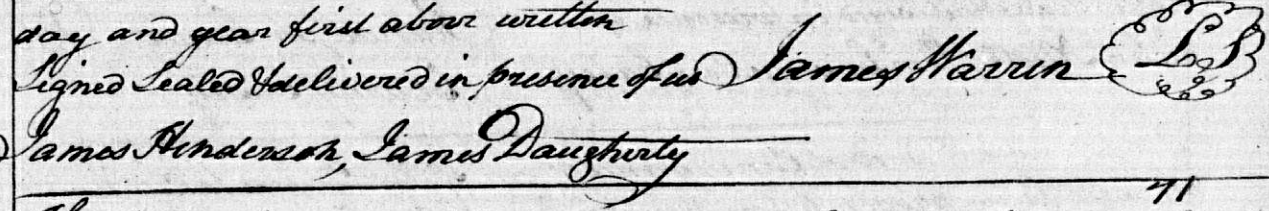 day and year first above written
Signed Sealed & delivered in presence of us James Warren L S
James Henderson, James Daugherty
71